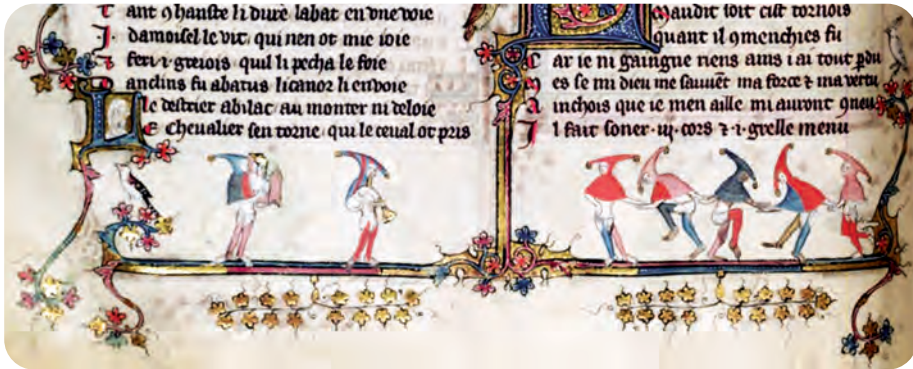 T ant ꝯ hanste li dure labat en vne voie
J · damoisel le vit · qui nen ot mie ioie
⁊ feri · i · greiois quil li pecha le foie
andins fu abatus licanor li enuoie
L e destrier abilac au monter ni deloie
L E cheualier sen torne qui le ceual ot pris
maudit soit cist tornois
quant il ꝯmenchies fu
C ar ie ni gaingne riens ains i ai tout pdu
es se mi dieu me sauuēt ma force ⁊ ma vertu
A inchois que ie men aille mi auront ꝯneu
J l fait soner · iij · cors ⁊ · i · grelle menu